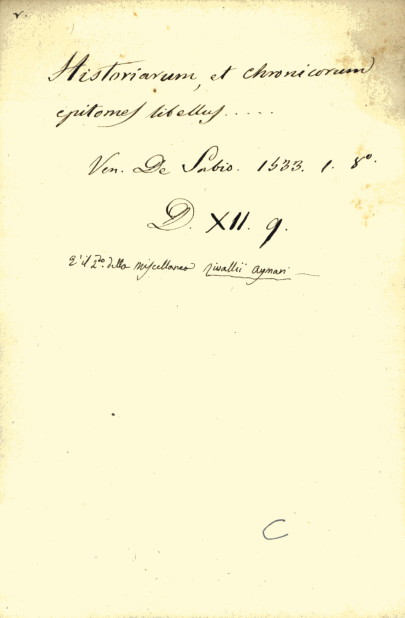 v.
Historiarum, et chronicorum
epitomes libellus.....
Ven. De Sabio. 1533. 1. 8º.
D. XII. 9.
E' il 2do. della Miscellanea Rivallii Aymari
C